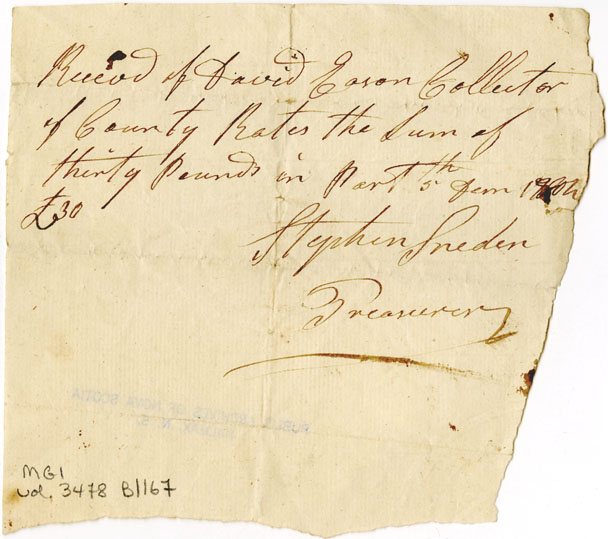 Reeevd of David Eason Collector
of County Rates the Sum of
thirty Pounds in Part 5th
£30
Stephen Sneden
Treasurer
PUBLIC ARCHIVES OF NOVA SCOTIA
HALIFAX, N. S.
MG1
vol. 3478 B/167